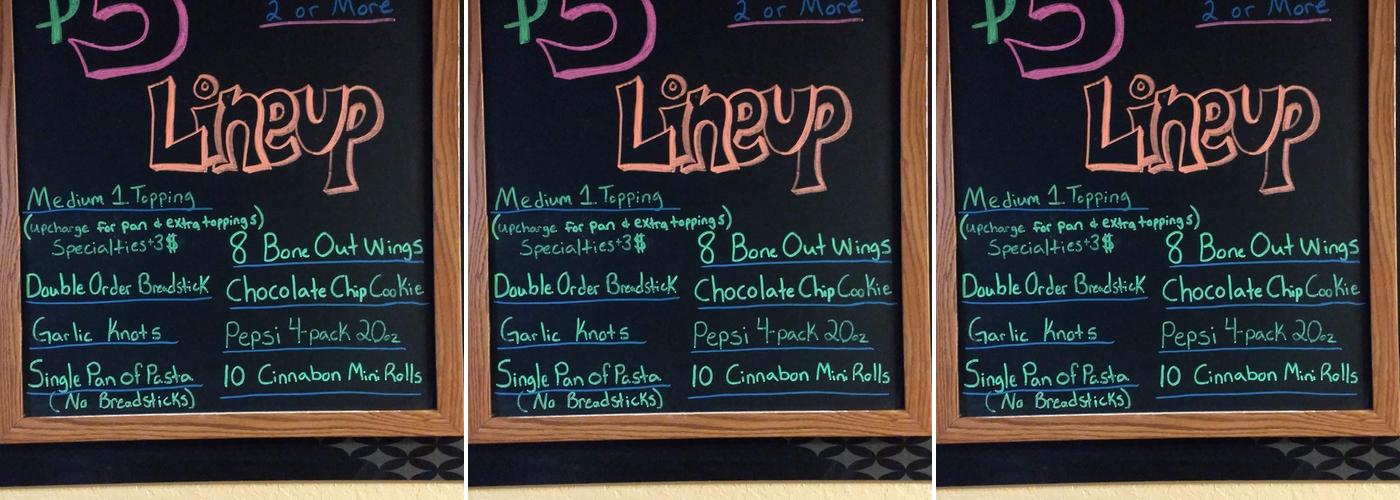 $5
2 or More
Lineup
Medium 1 Topping
(upcharge for pan & extra toppings)
Specialties +3$
Double Order Breadstick
Garlic Knots
Single Pan of Pasta
(No Breadsticks)
8 Bone Out Wings
Chocolate Chip Cookie
Pepsi 4-pack 20oz
10 Cinnabon Mini Rolls
$5
2 or More
Lineup
Medium 1 Topping
(upcharge for pan & extra toppings)
Specialties +3$
Double Order Breadstick
Garlic Knots
Single Pan of Pasta
(No Breadsticks)
8 Bone Out Wings
Chocolate Chip Cookie
Pepsi 4-pack 20oz
10 Cinnabon Mini Rolls
$5
2 or More
Lineup
Medium 1 Topping
(upcharge for pan & extra toppings)
Specialties +3$
Double Order Breadstick
Garlic Knots
Single Pan of Pasta
(No Breadsticks)
8 Bone Out Wings
Chocolate Chip Cookie
Pepsi 4-pack 20oz
10 Cinnabon Mini Rolls